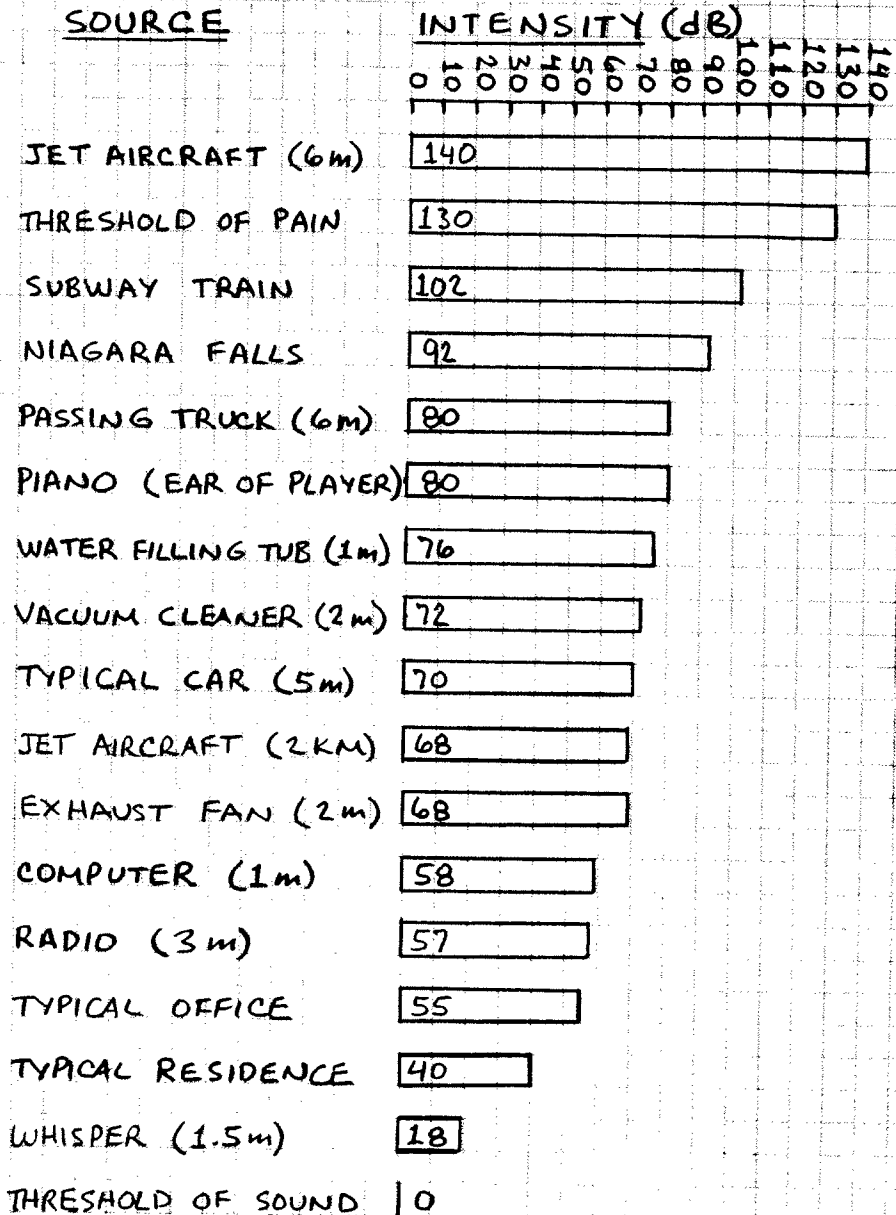 SOURCE INTENSITY (dB)
0 10 20 30 40 50 60 70 80 90 100 110 120 130 140
JET AIRCRAFT (6m) 140
THRESHOLD OF PAIN 130
SUBWAY TRAIN 102
NIAGARA FALLS 92
PASSING TRUCK (6m) 80
PIANO (EAR OF PLAYER) 80
WATER FILLING TUB (1m) 76
VACUUM CLEANER (2m) 72
TYPICAL CAR (5m) 70
JET AIRCRAFT (2KM) 68
EXHAUST FAN (2m) 68
COMPUTER (1m) 58
RADIO (3m) 57
TYPICAL OFFICE 55
TYPICAL RESIDENCE 40
WHISPER (1.5m) 18
THRESHOLD OF SOUND 0